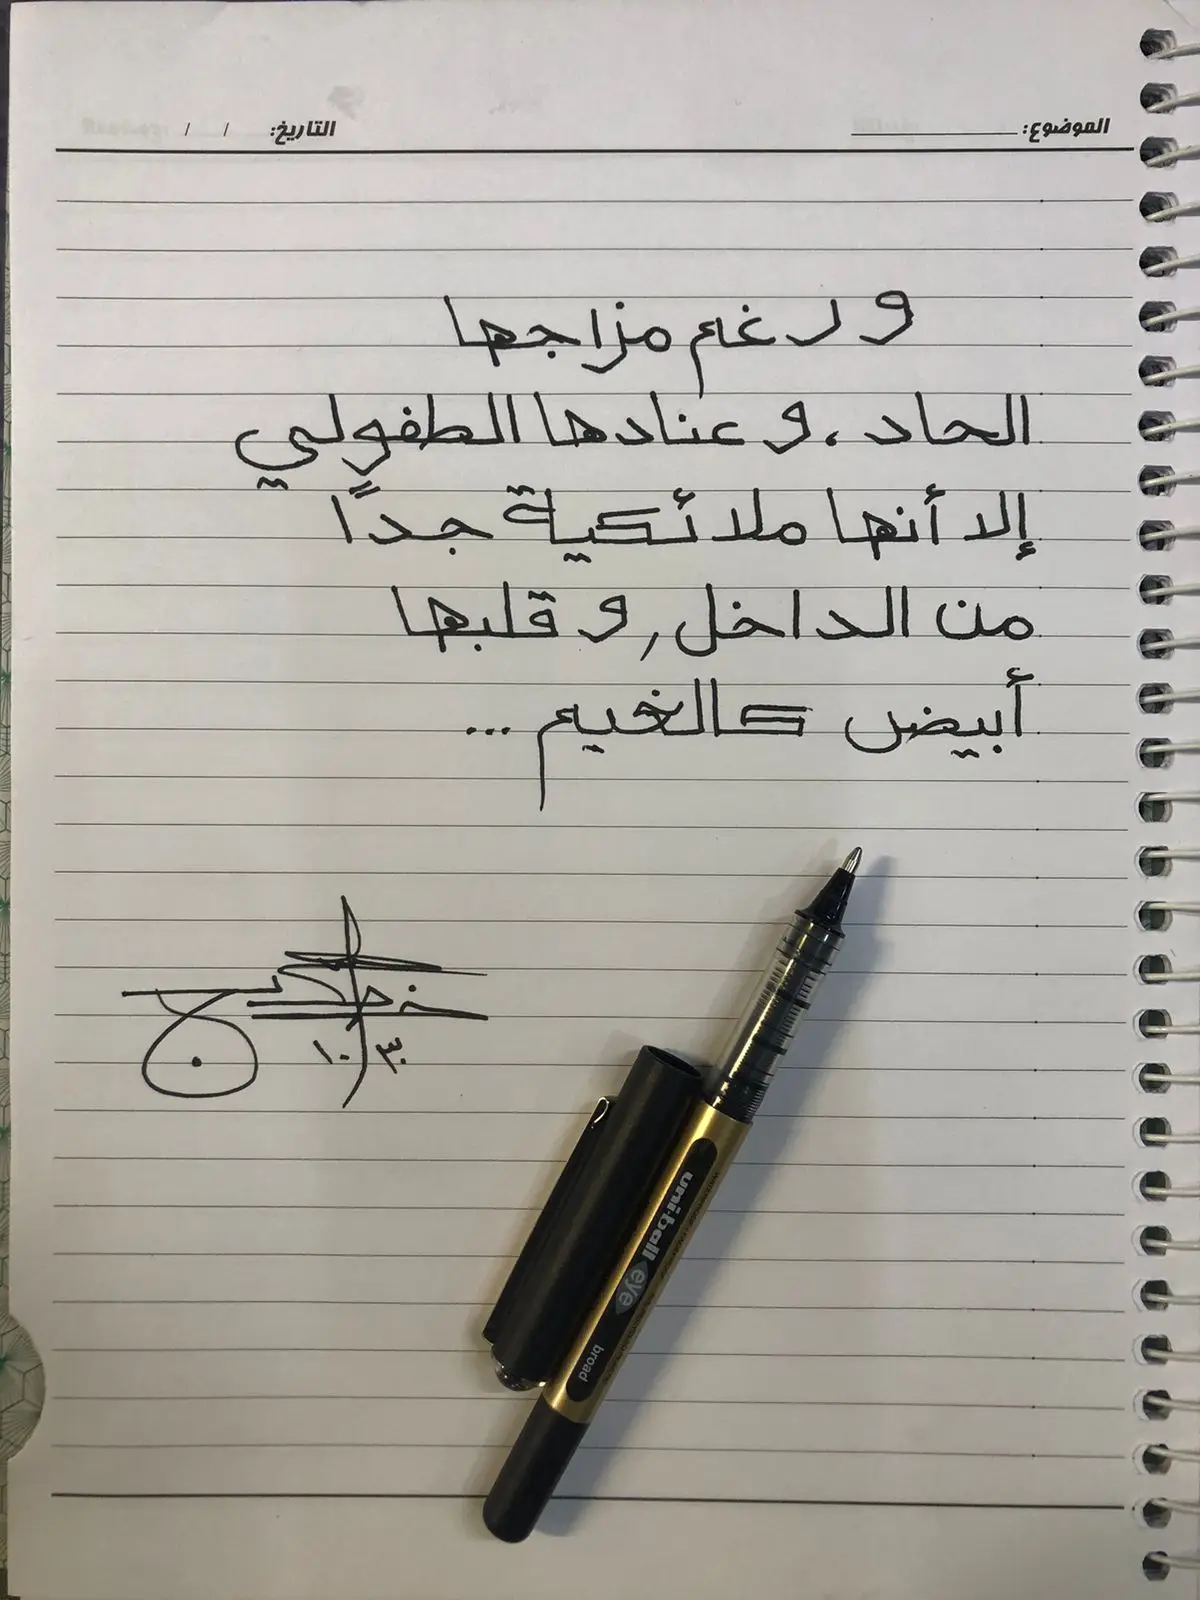 الموضوع: التاريخ: / /
و رغم مزاجها
الحاد ، و عنادها الطفولي
إلا أنها ملائكية جداً
من الداخل , و قلبها
أبيض كالغيم ...
١٠ ٣٠
uni-ball eye broad